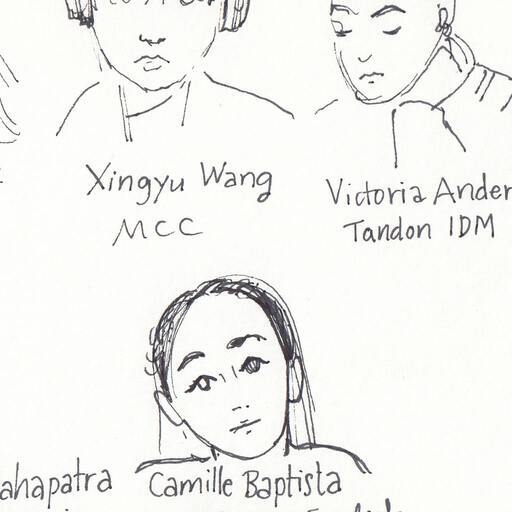 Xingyu Wang
MCC
Victoria Ander
Tandon IDM
ahapatra
Camille Baptista